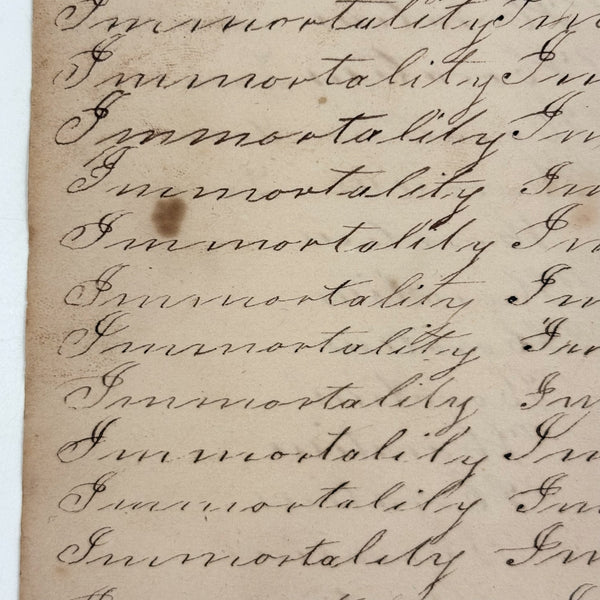 Immortality Im
Immortality Im
Immortality Im
Immortality Im
Immortality Im
Immortality Im
Immortality Im
Immortality Im
Immortality Im
Immortality Im
Immortality Im